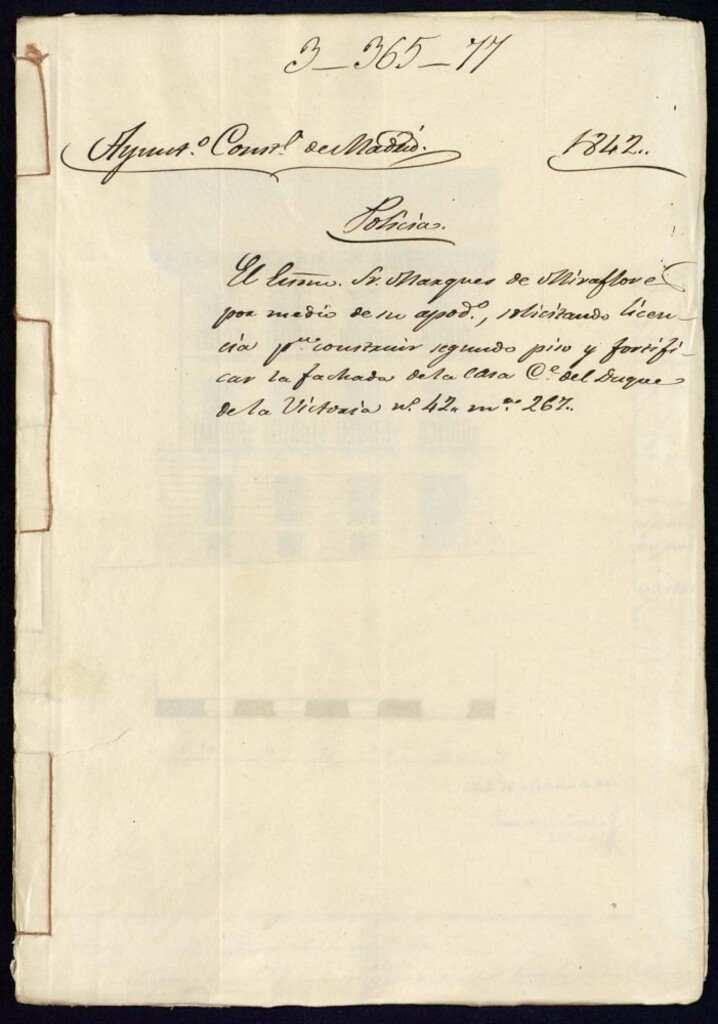 3-365-77
Ayunt.º Const.l de Madrid.
1842..
Policia.
El Exmo. Sr. Marques de Miraflores
por medio de su apod.º, solicitando licen-
cia p.a construir segundo piso y fortifi-
car la fachada de la casa C.e del Duque
de la Victoria nº. 42.. m.na 267..